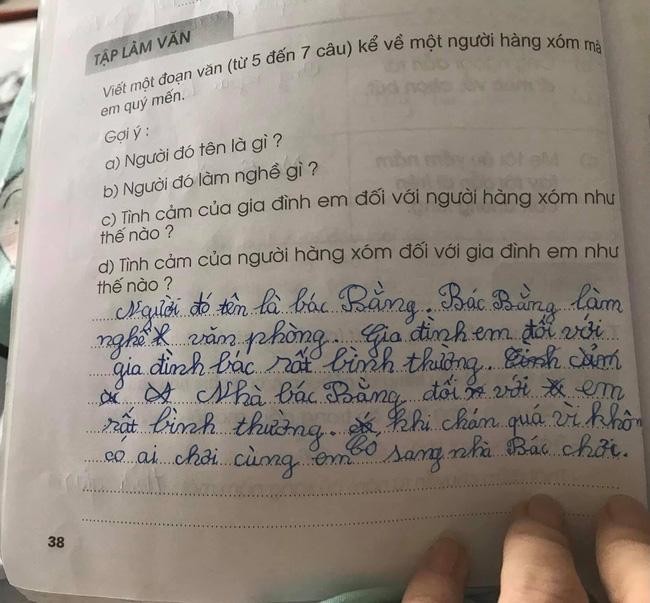 TẬP LÀM VĂN
Viết một đoạn văn (từ 5 đến 7 câu) kể về một người hàng xóm mà
em quý mến.
Gợi ý :
a) Người đó tên là gì ?
b) Người đó làm nghề gì ?
c) Tình cảm của gia đình em đối với người hàng xóm như
thế nào ?
d) Tình cảm của người hàng xóm đối với gia đình em như
thế nào ?
Người đó tên là bác Bằng. Bác Bằng làm
nghề văn phòng. Gia đình em đối với
gia đình bác rất bình thường. Tình cảm
Nhà bác Bằng đối với em
rất bình thường. khi chán quá vì khôn
có ai chơi cùng em bỏ sang nhà Bác chơi.
38